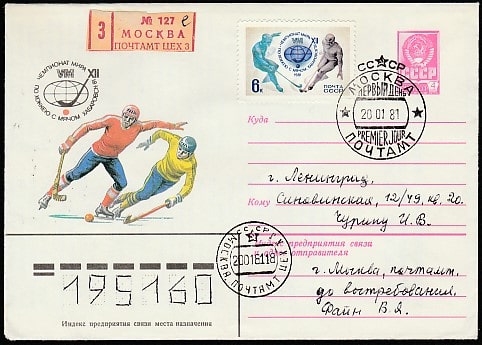 № 127 е
З МОСКВА
ПОЧТАМТ ЦЕХ 3
XII ЧЕМПИОНАТ МИРА
ПО ХОККЕЮ С МЯЧОМ ХАБАРОВСК 81
6к
ПОЧТА СССР
СССР
МОСКВА
ПЕРВЫЙ ДЕНЬ
20 01 81
PREMIER JOUR
ПОЧТАМТ
СССР
Куда
г. Ленинград,
Кому Синявинская, 12/49, кв. 20.
Чурину И. В.
Индекс предприятия связи
отправителя
г. Москва, почтамт,
до востребования.
Файн В. Я.
СССР
МОСКВА ПОЧТАМТ
195160
Индекс предприятия связи места назначения